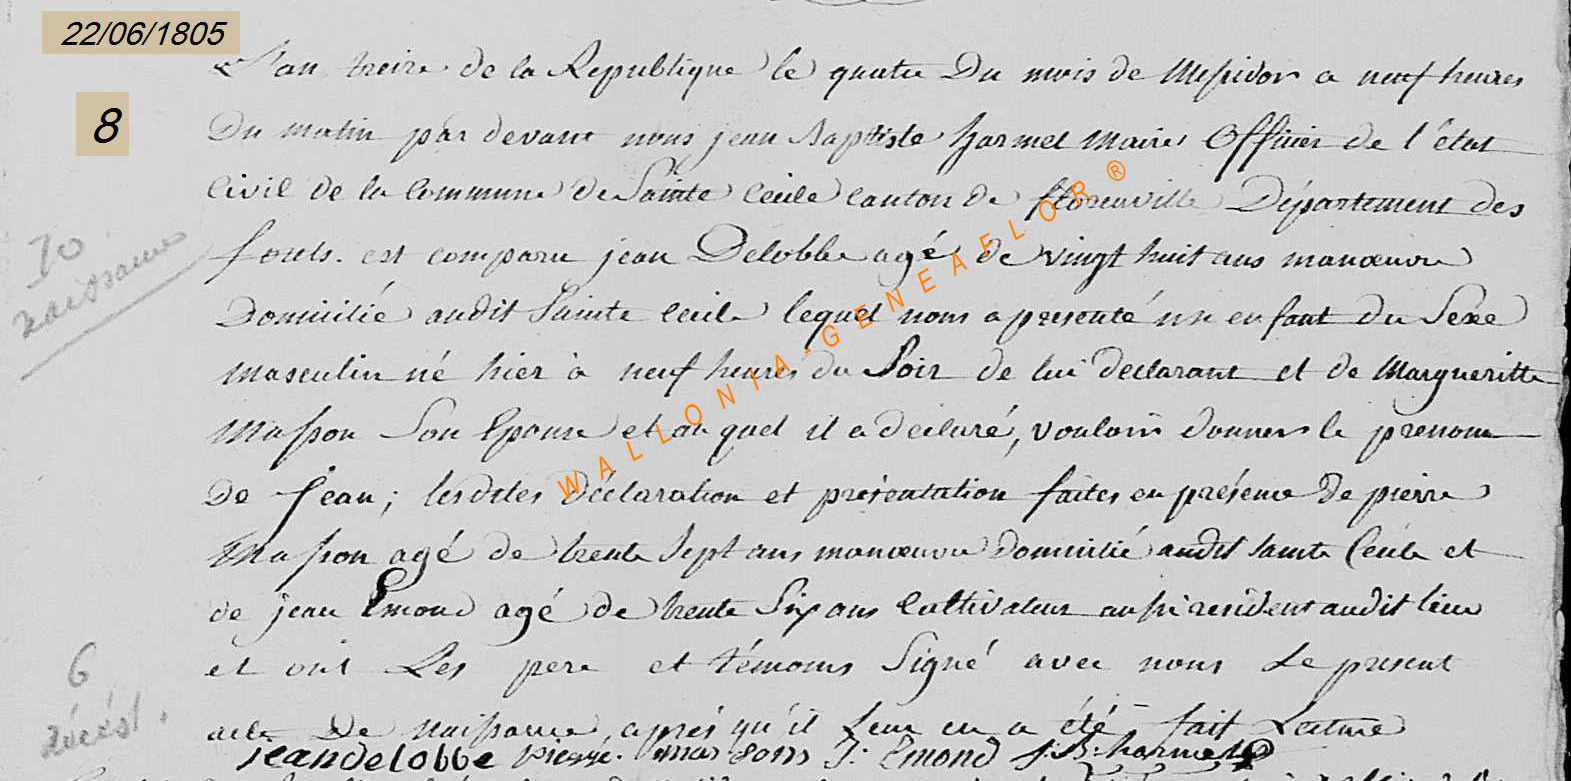 22/06/1805
L'an treize de la Republique le quatre Du mois de Messidor a neuf heures
8
Du matin par devant nous jean Baptiste harmel maire Officier de l'état
Civil de la Commune de Sainte Cecile canton de florenville Département des
forets. est comparu jean Delobbe agé de vingt huit ans manœuvre
10
naissance
Domicilié audit Sainte Cecile lequel nous a presenté un enfant du Sexe
masculin né hier à neuf heures du Soir de lui declarant et de Margueritte
Masson Son Epouse et au quel il a declaré, vouloir donner le prenom
De Jean; lesdites Déclaration et présentation faites en présence de pierre
Masson agé de trente Sept ans manœuvre Domicilié audit Sainte Cecile et
de jean Emond agé de trente Six ans Cultivateur aussi resident audit lieu
et ont Les pere et témoins Signé avec nous Le present
6
décés.
acte De Naissance après qu'il Leur en a été fait Lecture
jean delobbe pierre. massons J: Emond J: B: harmel
WALLONIA-GENEAFLOR®